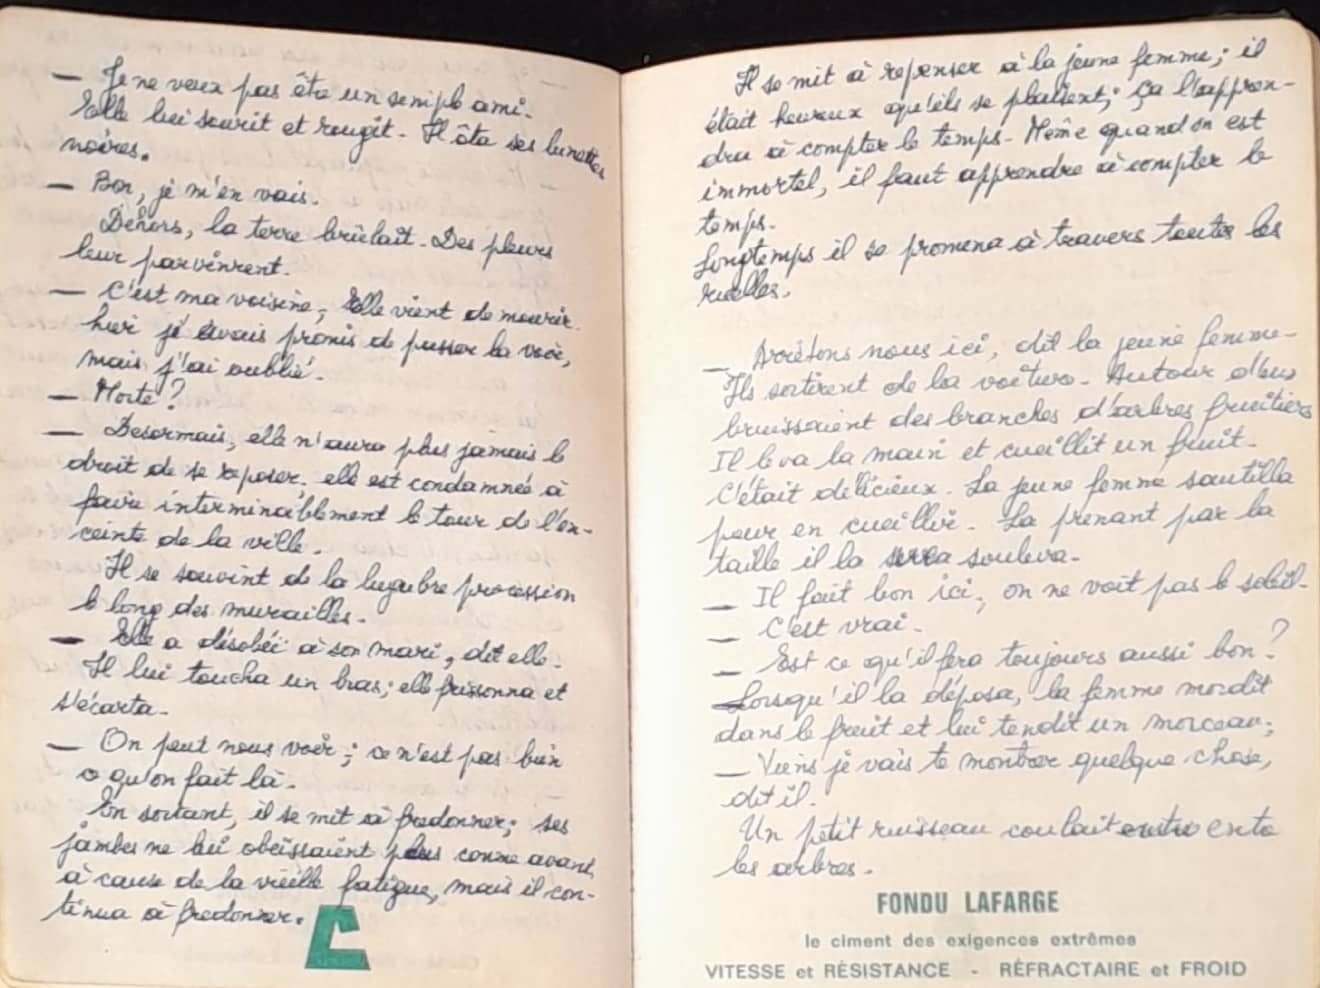 — Je ne veux pas être un simple ami.
Elle lui sourit et rougit. Il ôta ses lunettes
noires.
— Bon, je m'en vais.
Dehors, la terre brûlait. Des pleurs
leur parvinrent.
— C'est ma voisine, Elle vient de mourir.
hier j'avais promis de passer la voir,
mais j'ai oublié.
— Morte ?
— Desormais, elle n'aura plus jamais le
droit de se reposer. elle est condamnée à
faire interminablement le tour de l'en-
ceinte de la ville.
Il se souvint de la lugubre procession
le long des murailles.
— Elle a désobéi à son mari, dit elle.
Il lui toucha un bras; elle frissonna et
s'écarta.
— On peut nous voir; ce n'est pas bien
ce qu'on fait là.
En sortant, il se mit à fredonner; ses
jambes ne lui obéissaient plus comme avant,
à cause de la vieille fatigue, mais il con-
tinua à fredonner.
Il se mit à repenser à la jeune femme; il
était heureux qu'ils se plaisent; ça l'appren-
dra à compter le temps. Même quand on est
immortel, il faut apprendre à compter le
temps.
Longtemps il se promena à travers toutes les
ruelles.
— Arrêtons nous ici, dit la jeune femme.
Ils sortirent de la voiture. Autour d'eux
bruissaient des branches d'arbres fruitiers
Il leva la main et cueillit un fruit.
C'était délicieux. La jeune femme sautilla
pour en cueillir. La prenant par la
taille il la serra souleva.
— Il fait bon ici, on ne voit pas le soleil.
— C'est vrai.
— Est ce qu'il fera toujours aussi bon ?
Lorsqu'il la déposa, la femme mordit
dans le fruit et lui tendit un morceau;
— Viens je vais te montrer quelque chose,
dit il.
Un petit ruisseau coulait entre entre
les arbres.
FONDU LAFARGE
le ciment des exigences extrêmes
VITESSE et RÉSISTANCE - RÉFRACTAIRE et FROID